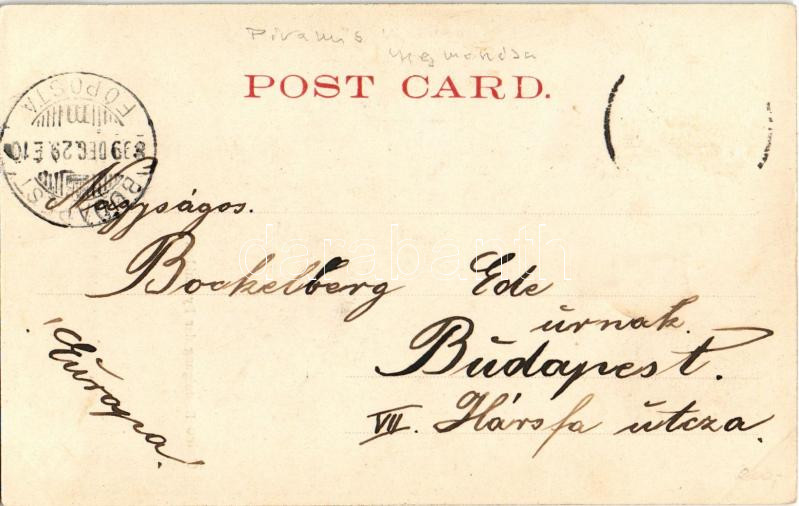 Piramis
megmondása
POST CARD.
BUDAPEST
FŐPOSTA
899 DEC. 29. É 10
Nagyságos.
Bockelberg Ede
úrnak.
Budapest.
VII. Hársfa útcza.
Európa.
darabanth